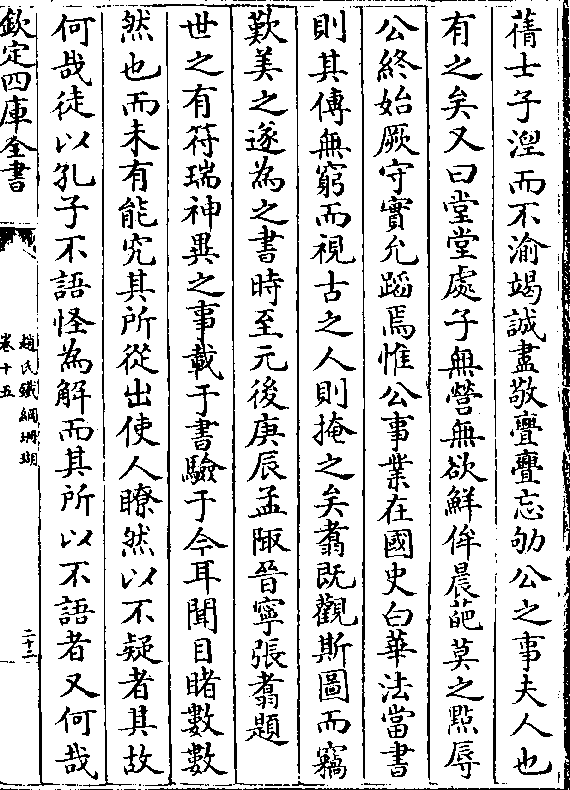 蒨士子涅而不渝竭誠盡敬亹亹忘劬公之事夫人也
有之矣又曰堂堂處子無營無欲鮮侔晨葩莫之點辱
公終始厥守實允蹈焉惟公事業在國史白華法當書
則其傳無窮而視古之人則掩之矣翥既觀斯圖而竊
歎美之遂為之書時至元後庚辰孟陬晉寧張翥題
世之有符瑞神異之事載于書驗于今耳聞目睹數數
然也而未有能究其所從出使人瞭然以不疑者其故
何哉徒以孔子不語怪為解而其所以不語者又何哉
欽定四庫全書
趙氏鐵網珊瑚
卷十五
二十二